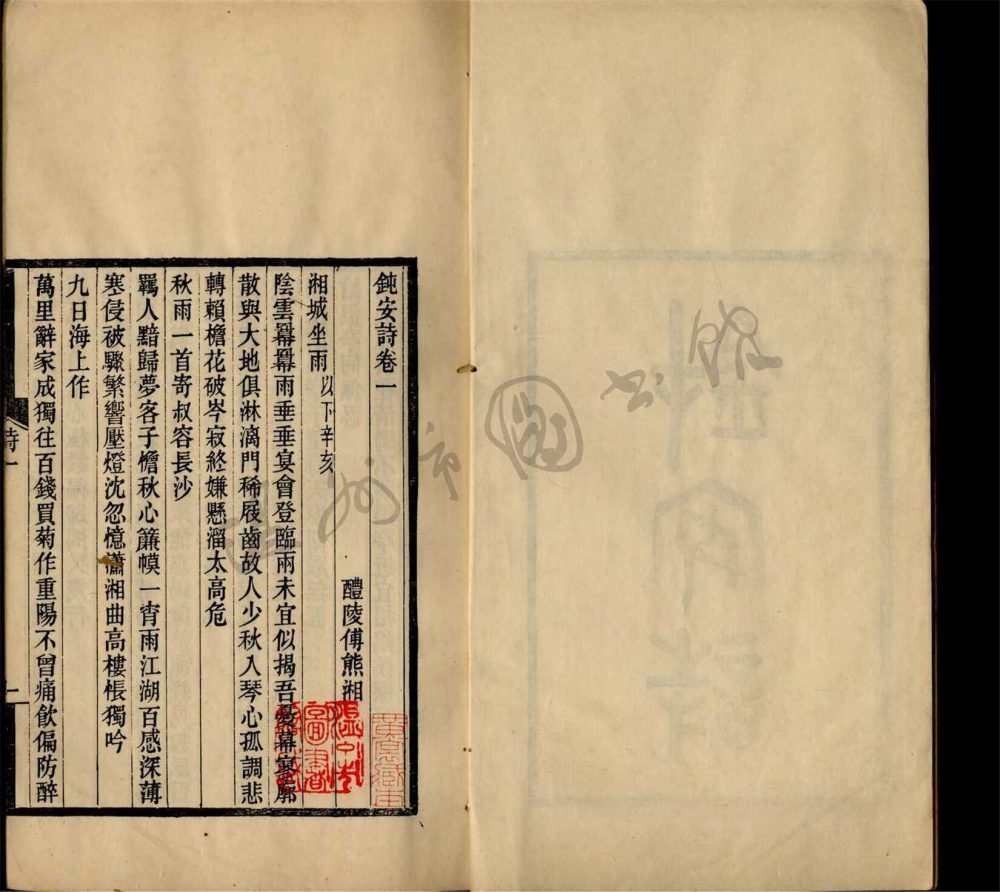 鈍安詩卷一
醴陵傅熊湘
湘城坐雨 以下辛亥
陰雲羃羃雨垂垂宴會登臨兩未宜似揭吾憂幕寥廓
散與大地俱淋漓門稀屐齒故人少秋入琴心孤調悲
轉賴檐花破岑寂終嫌懸溜太高危
秋雨一首寄叔容長沙
羈人黯歸夢客子憺秋心簾幙一宵雨江湖百感深薄
寒侵被驟繁響壓燈沈忽憶瀟湘曲高樓悵獨吟
九日海上作
萬里辭家成獨往百錢買菊作重陽不曾痛飲偏防醉
詩一
一
圖書
州市圖書館